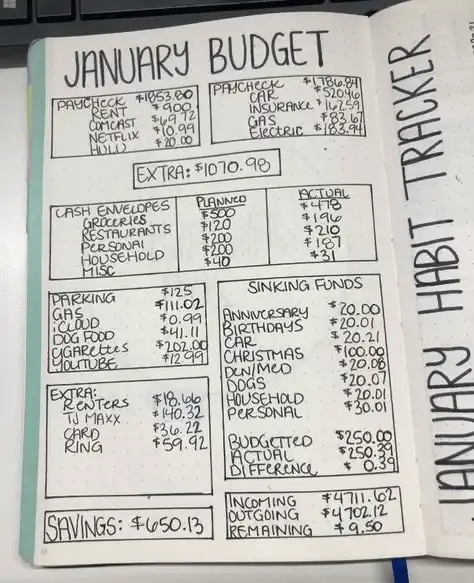 JANUARY BUDGET
PAYCHECK $1853.80
RENT $900
COMCAST $69.72
NETFLIX $10.99
HULU $20.00
PAYCHECK $1786.84
CAR $520.46
INSURANCE $162.59
GAS $83.67
Electric $183.94
EXTRA: $1070.98
CASH ENVELOPES PLANNED ACTUAL
GROCERIES $500 $478
RESTAURANTS $120 $196
PERSONAL $200 $210
HOUSEHOLD $200 $187
MISC $40 $31
PARKING $125
GAS $111.02
iCLOUD $0.99
DOG FOOD $41.11
CIGARETTES $202.00
YOUTUBE $12.99
SINKING FUNDS
ANNIVERSARY $20.00
BIRTHDAYS $20.01
CAR $20.21
CHRISTMAS $100.00
DEN/MED $20.08
DOGS $20.07
HOUSEHOLD $20.01
PERSONAL $30.01
BUDGETTED $250.00
ACTUAL $250.39
DIFFERENCE $0.39
EXTRA:
RENTERS $18.66
TJ MAXX $140.32
CARD $36.22
RING $59.92
SAVINGS: $650.13
INCOMING $4711.62
OUTGOING $4702.12
REMAINING $9.50
JANUARY HABIT TRACKER